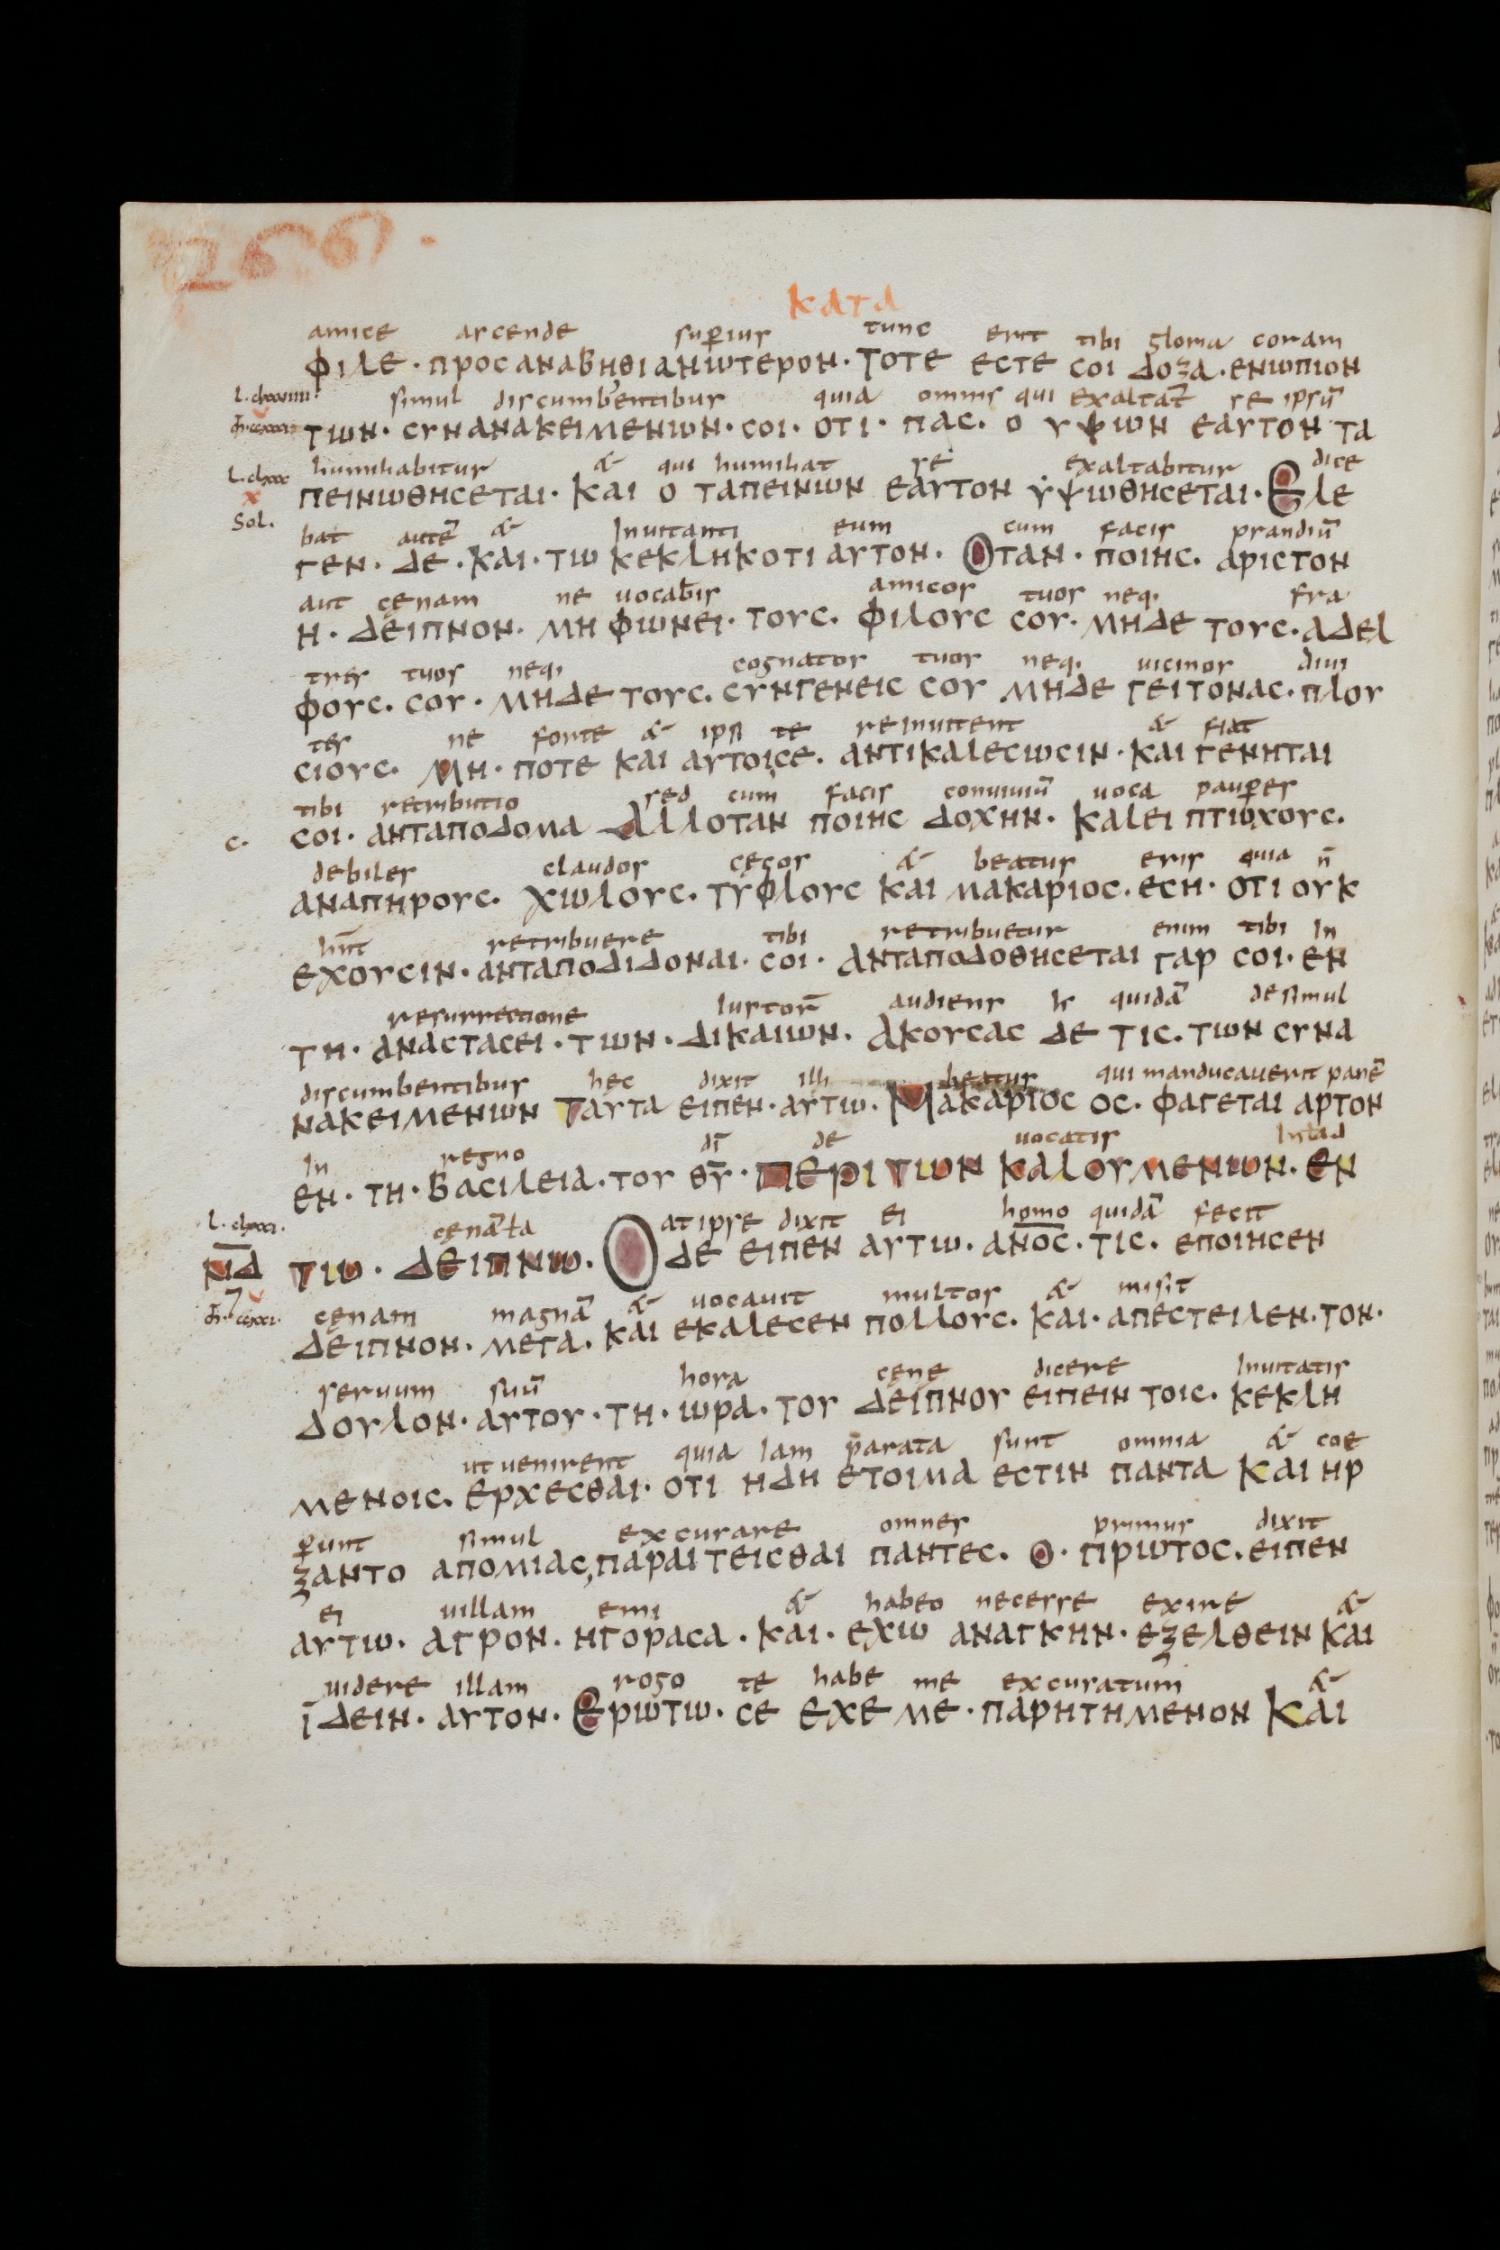 266.
κατα
amice ascende suꝑius tunc erit tibi gloria coram
φιλε · προσαναβηθι ανωτερον · Τοτε εστε σοι δοξα · ενωπιον
simul discumbentibus quia omnis qui exaltat se ipsū
των · συνανακειμενων · σοι · οτι · πας · ο υψων εαυτον τα
humiliabitur & qui humiliat se exaltabitur dice
πεινωθησεται · Και ο ταπεινων εαυτον υψωθησεται · Ελε
Sol.
bat autē & Inuitanti eum cum facis prandiū
γεν · δε · και · τω κεκληκοτι αυτον · Οταν · ποιης · αριστον
aut cęnam ne uocabis amicos tuos neq; fra
η · δειπνον · μη φωνει · τους · φιλους σου · μηδε τους · αδελ
tres tuos neq; cognatos tuos neq; uicinos diui
φους · σου · μηδε τους · συνγενεις σου μηδε γειτονας · πλου
tes ne forte & ipsi te reinuitent & fiat
σιους · Μη · ποτε και αυτοι σε · αντικαλεσωσιν · και γενηται
tibi retributio sed cum facis conuiuiū uoca pauꝑes
c. σοι · ανταποδομα Αλλοταν ποιης δοχην · Καλει πτωχους ·
debiles claudos cęcos & beatus eris quia n̄
αναπηρους · χωλους · τυφλους και μακαριος · εση · οτι ουκ
hn̄t retribuere tibi retribuetur enim tibi In
εχουσιν · ανταποδιδοναι · σοι · Ανταποδοθησεται γαρ σοι · εν
resurrectione Iustorū audiens Is quidā de simul
τη · αναστασει · των · δικαιων · Ακουσας δε τις · των συνα
discumbentibus hęc dixit illi beatus qui manducauerit panē
νακειμενων Ταυτα ειπεν · αυτω · Μακαριος ος · φαγεται αρτον
In regno dī de uocatis
εν · τη · βασιλεια · του θ̅υ̅ · Περι των καλουμενων · εν
cęnā at ipse dixit ei homo quidā fecit
ν̅δ̅ τω · δειπνω · Ο δε ειπεν αυτω · α̅ν̅ο̅ς̅ · τις · εποιησεν
cęnam magnā & uocauit multos & misit
δειπνον · μεγα · και εκαλεσεν πολλους · και · απεστειλεν · τον ·
seruum suū hora cęnę dicere Inuitatis
δουλον · αυτου · τη · ωρα · του δειπνου ειπειν τοις · κεκλη
ut uenirent quia Iam p̄arata sunt omnia & coe
μενοις · ερχεσθαι · οτι ηδη ετοιμα εστιν παντα Και ηρ
ꝑunt simul excusare omnes primus dixit
ξαντο απο μιας, παραιτεισθαι παντες · ο · πρωτος · ειπεν
ei uillam emi & habeo necesse exire &
αυτω · αγρον · ηγορασα · και · εχω αναγκην · εξελθειν και
uidere illam rogo te habe me excusatum &
ιδειν · αυτον · Ερωτω · σε εχε με · παρητημενον Και